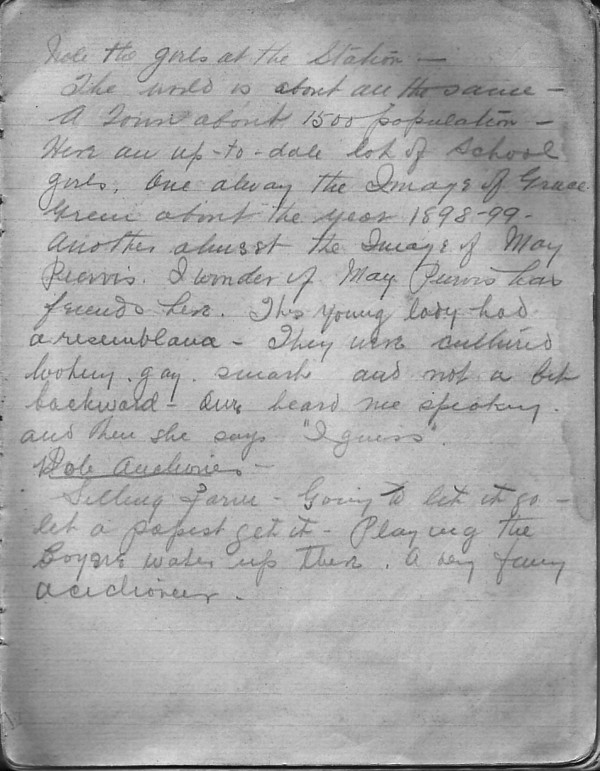 Note the girls at the Station —
The world is about all the same —
A Town about 1500 population —
Here an up-to-date lot of School
girls. One alway the Image of Grace
Green about the year 1898-99 -
Another almost the Image of May
Purvis. I wonder if May Purvis has
friends here. This young lady had
a resemblance - They were cultured
looking, gay, smart and not a bit
backward - One heard me speaking.
and then she says "I guess".
Note Auctioneer -
Selling Farm - Going to let it go -
let a papist get it - Playing the
Boyne water up there. A very funny
auctioneer.